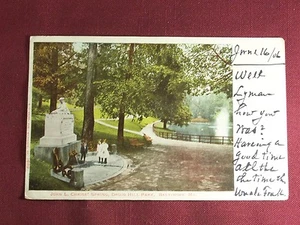 June 16/06
Well
Lyman
how you
Was?
Having a
good time
all the
the time th
JOHN L. CROWLEY SPRING, DRUID HILL PARK, BALTIMORE, MD.